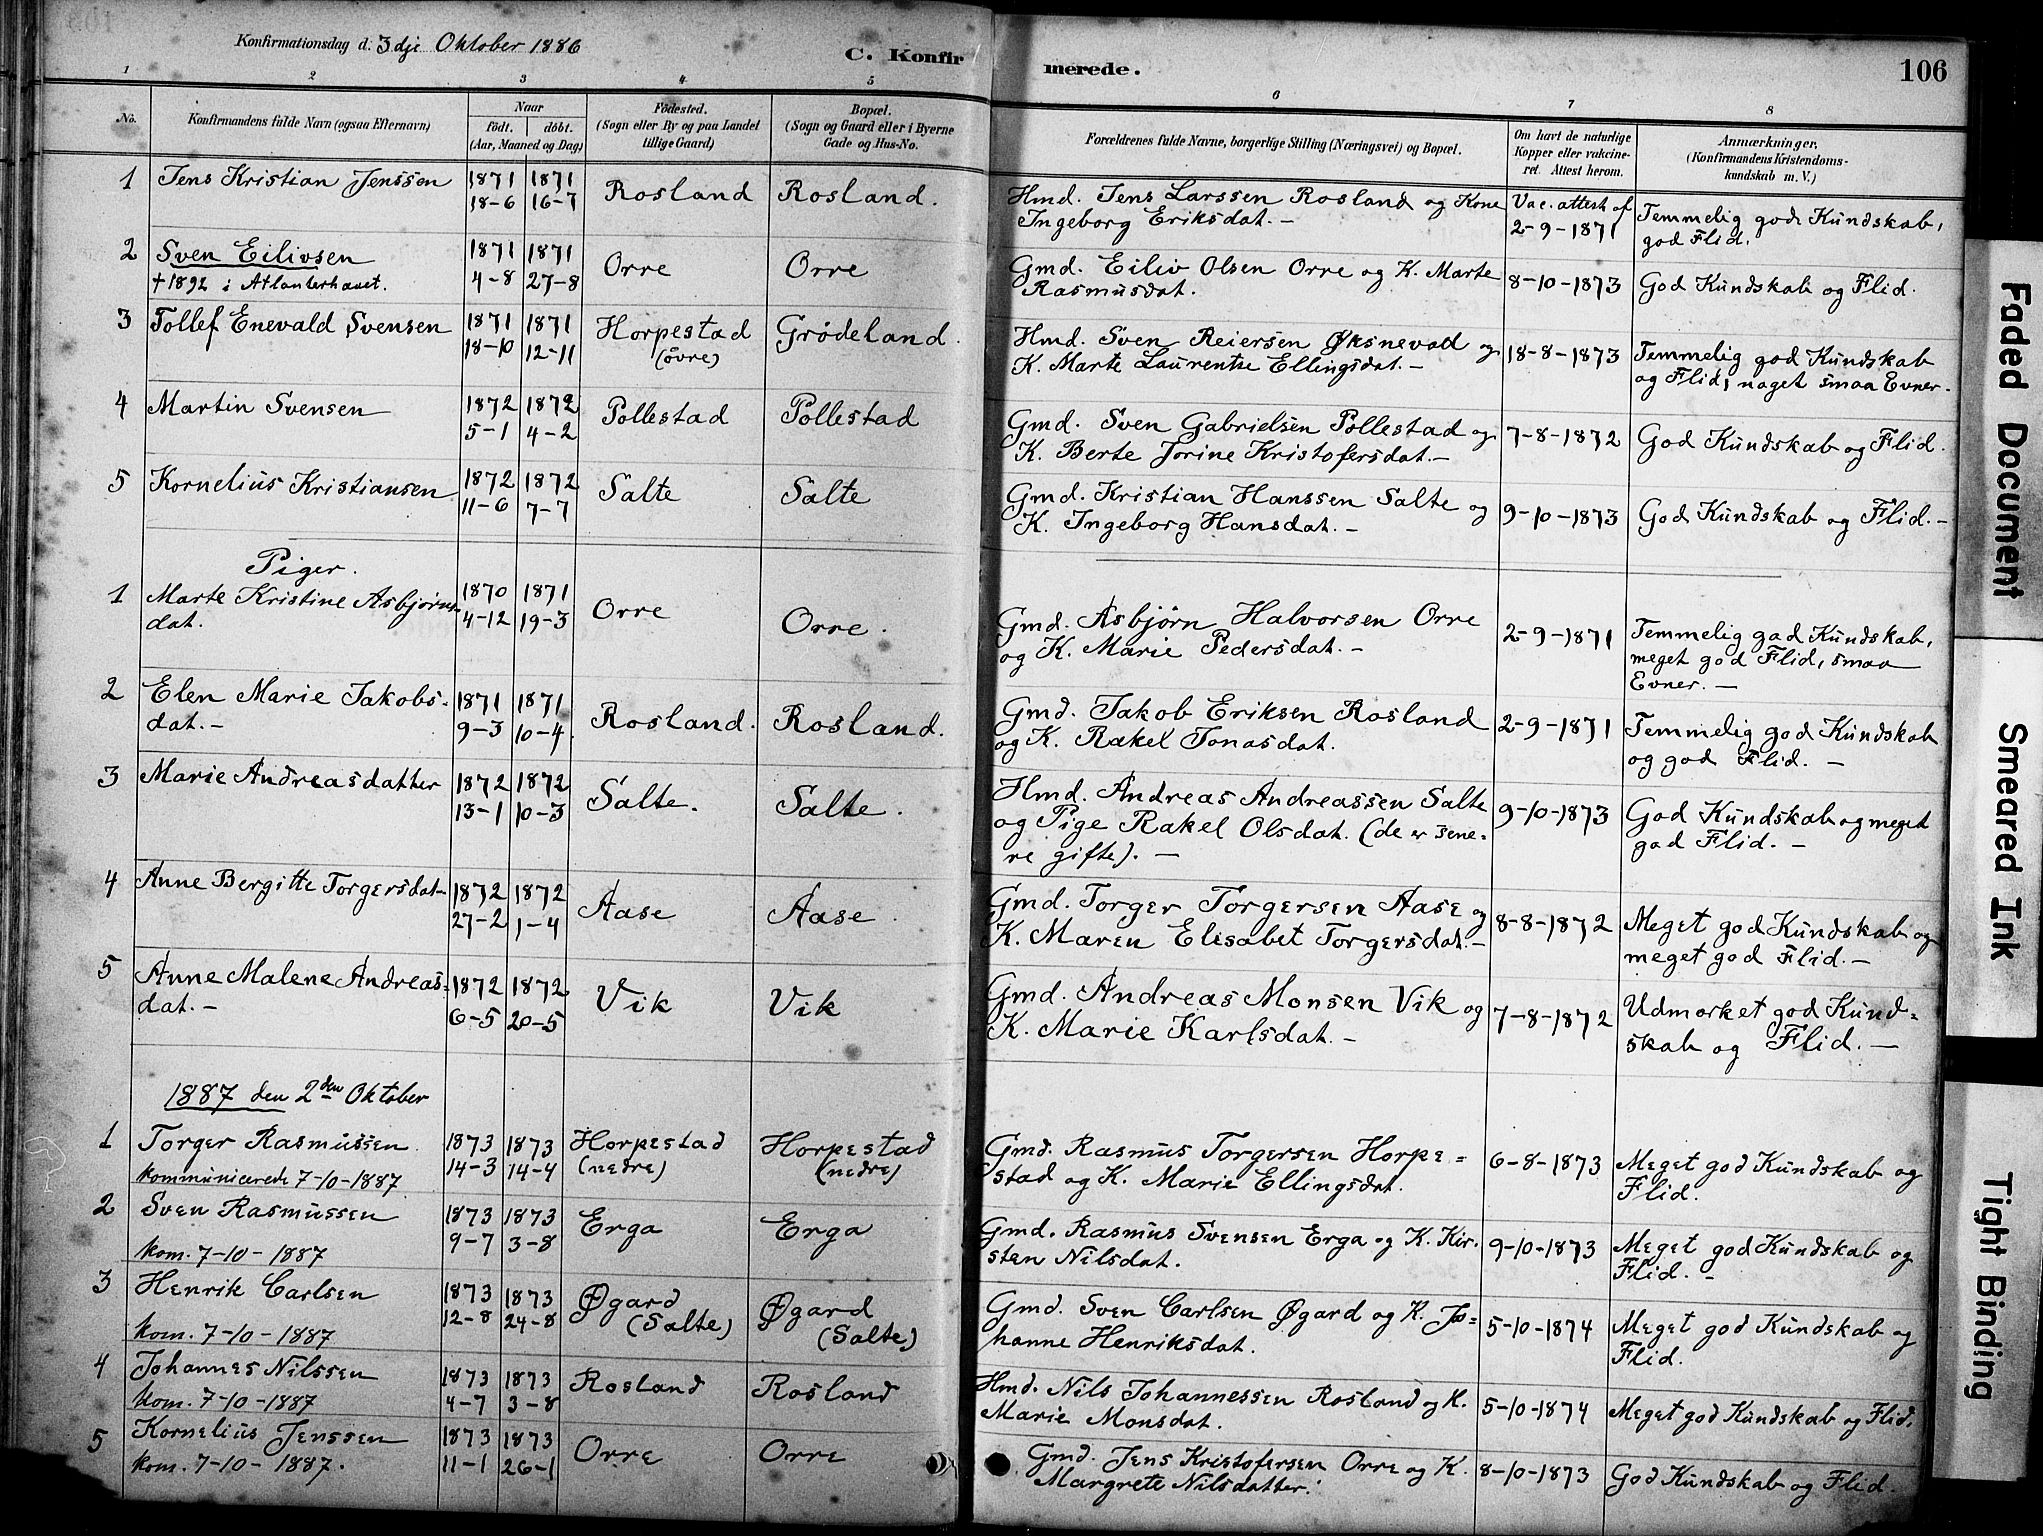 Konfirmationsdag d. 3dje Oktober 1886
C. Konfirmerede.
106
1 2 3 4 5 6 7 8
No.
Konfirmandens fulde Navn (ogsaa Efternavn)
Naar
födt. döbt.
(Aar, Maaned og Dag)
Födested.
(Sogn eller By og paa Landet
tillige Gaard)
Bopæl.
(Sogn og Gaard eller i Byerne
Gade og Hus-No.
Forældrenes fulde Navne, borgerlige Stilling (Næringsvei) og Bopæl.
Om havt de naturlige
Kopper eller vakcine-
ret. Attest herom.
Anmærkninger.
(Konfirmandens Kristendoms-
kundskab m. V.)
1 Jens Kristian Jenssen 1871 1871 Rosland Rosland. Hmd. Jens Larssen Rosland og Kone Vac. attest af Temmelig god Kundskab,
18-6 16-7 Ingeborg Eriksdat. - 2-9-1871 god Flid.
2 Sven Eilivsen 1871 1871 Orre Orre Gmd. Eiliv Olsen Orre og K. Marte 8-10-1873 God Kundskab og Flid.
+ 1892 i Atlanterhavet. 4-8 27-8 Rasmusdat.
3 Tollef Enevald Svensen 1871 1871 Horpestad Grødeland. Hmd. Sven Reiersen Øksnevad og 18-8-1873 Temmelig god Kundskab
18-10 12-11 (øvre) K. Marte Laurentse Ellingsdat. - og Flid, noget smaa Evner.
4 Martin Svensen 1872 1872 Pollestad Pollestad Gmd. Sven Gabrielsen Pollestad og 7-8-1872 God Kundskab og Flid.
5-1 4-2 K. Berte Jorine Kristofersdat. -
5 Kornelius Kristiansen 1872 1872 Salte Salte Gmd. Kristian Hanssen Salte og 9-10-1873 God Kundskab og Flid. -
11-6 7-7 K. Ingeborg Hansdat. -
Piger.
1 Marte Kristine Asbjørns- 1870 1871 Orre Orre. Gmd. Asbjørn Halvorsen Orre 2-9-1871 Temmelig god Kundskab,
dat. 4-12 19-3 og K. Marie Pedersdat. - meget god Flid, smaa
Evner. -
2 Elen Marie Jakobs- 1871 1871 Rosland. Rosland. Gmd. Jakob Eriksen Rosland 2-9-1871 Temmelig god Kundskab
dat. - 9-3 10-4. og K. Rakel Jonasdat. og god Flid. -
3 Marie Andreasdatter 1872 1872 Salte. Salte. Hmd. Andreas Andreassen Salte 9-10-1873 God Kundskab og meget
13-1 10-3 og Pige Rakel Olsdat. (de er sene- god Flid. -
re gifte). -
4 Anne Bergitte Torgersdat- 1872 1872 Aase Aase. Gmd. Torger Torgersen Aase og 8-8-1872 Meget god Kundskab og
27-2 1-4 K. Maren Elisabet Torgersdat. - meget god Flid. -
5 Anne Malene Andreas- 1872 1872 Vik Vik Gmd. Andreas Monsen Vik og 7-8-1872 Udmærket god Kund-
dat. - 6-5 20-5 K. Marie Karlsdat. - skab og Flid. -
1887 den 2den Oktober
1 Torger Rasmussen. 1873 1873 Horpestad Horpestad Gmd. Rasmus Torgersen Horpe- 6-8-1873 Meget god Kundskab og
kommunicerede 7-10-1887 14-3 14-4 (nedre) (nedre) stad og K. Marie Ellingsdat. Flid.
2 Sven Rasmussen 1873 1873 Erga Erga Gmd. Rasmus Svensen Erga og K. Kir- 9-10-1873 Meget god Kundskab og
kom. 7-10-1887 9-7 3-8 sten Nilsdat. Flid. -
3 Henrik Carlsen 1873 1873 Øgard Øgard Gmd. Sven Carlsen Øgard og K. Jo- 5-10-1874 Meget god Kundskab og
kom. 7-10-1887 12-8 24-8 (Salte) (Salte) hanne Henriksdat. Flid.
4 Johannes Nilssen 1873 1873 Rosland Rosland Hmd. Nils Johannessen Rosland og K. 5-10-1874 Meget god Kundskab og Flid.
kom. 7-10-1887 4-7 3-8 Marie Monsdat.
5 Kornelius Jenssen 1873 1873 Orre Orre Gmd. Jens Kristofersen Orre og K. 8-10-1873 God Kundskab og Flid.
kom. 7-10-1887. 11-1 26-1 Margrete Nilsdatter.
Faded Document
Smeared Ink
Tight Binding